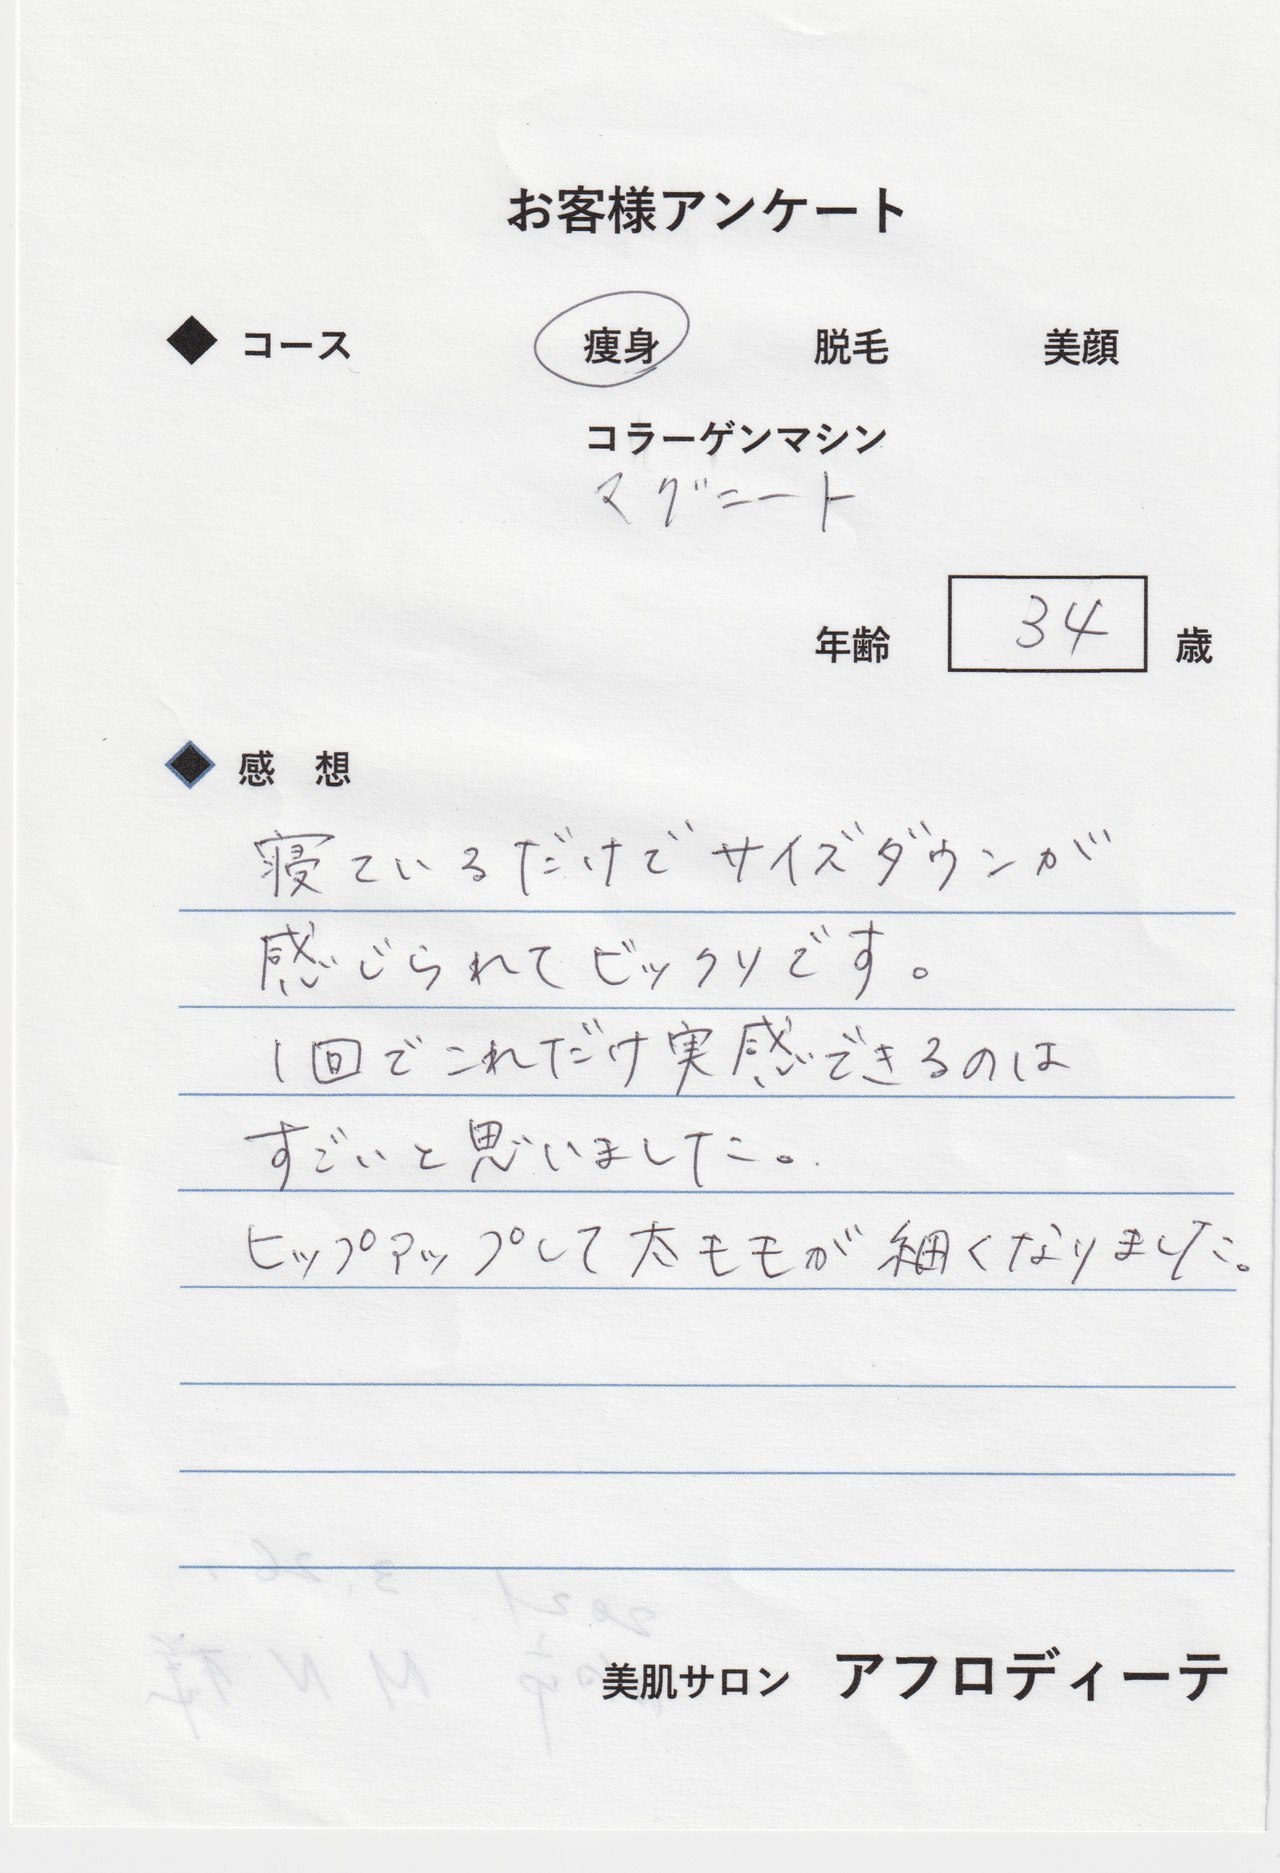 お客様アンケート
◆ コース 痩身 脱毛 美顔
コラーゲンマシン
マグニート
年齢 34 歳
◆ 感 想
寝ているだけでサイズダウンが
感じられてビックリです。
1回でこれだけ実感できるのは
すごいと思いました。
ヒップアップして太モモが細くなりました。
3.26.
2021
M N 様
美肌サロン アフロディーテ